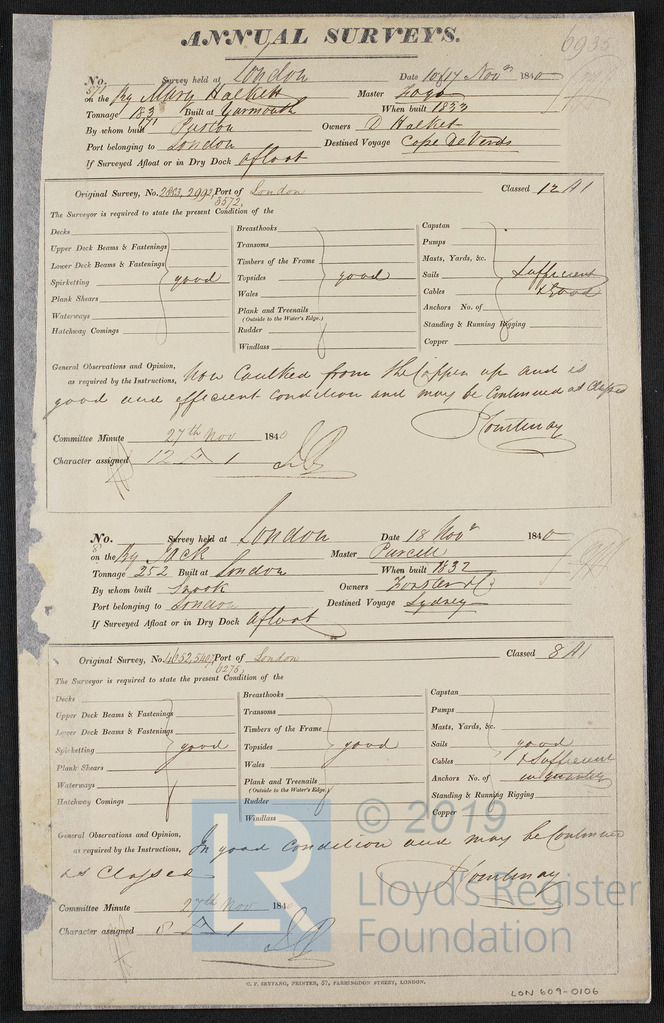 ANNUAL SURVEYS.
6935
No. Survey held at London Date 10 & 17 Novr 1840
on the Bg Mary Halkett Master
Tonnage 183 Built at Yarmouth When built 1833
By whom built Preston Owners D Halket
Port belonging to London Destined Voyage Cape De Verds
If Surveyed Afloat or in Dry Dock afloat
Original Survey, No. 2863, 2993, Port of London Classed 12 A1
3572,
The Surveyor is required to state the present Condition of the
Decks Breasthooks Capstan
Upper Deck Beams & Fastenings Transoms Pumps
Lower Deck Beams & Fastenings Timbers of the Frame Masts, Yards, &c.
Spirketting good Topsides good Sails Sufficient
Plank Shears Wales Cables & Good
Waterways Plank and Treenails Anchors No. of
(Outside to the Water's Edge.)
Hatchway Comings Rudder Standing & Running Rigging
Windlass Copper
General Observations and Opinion, Now Caulked from the Copper up and is
as required by the Instructions,
good and efficient condition and may be Continued as Classed
Courtenay
Committee Minute 27th Nov 1840
Character assigned 12 A 1
No. Survey held at London Date 18 Novr 1840
on the Bg Jack Master Purcell
Tonnage 252 Built at London When built 1837
By whom built Snook Owners Forster & Co
Port belonging to London Destined Voyage Sydney
If Surveyed Afloat or in Dry Dock afloat
Original Survey, No. 4652, 5407, Port of London Classed 8 A1
6275,
The Surveyor is required to state the present Condition of the
Decks Breasthooks Capstan
Upper Deck Beams & Fastenings Transoms Pumps
Lower Deck Beams & Fastenings Timbers of the Frame Masts, Yards, &c.
Spirketting good Topsides good Sails good
Plank Shears Wales Cables & Sufficient
Waterways Plank and Treenails Anchors No. of in quantity
(Outside to the Water's Edge.)
Hatchway Comings Rudder Standing & Running Rigging
Windlass Copper
General Observations and Opinion, In good condition and may be Continued
as required by the Instructions,
as Classed Courtenay
Committee Minute 27th Nov 1840
Character assigned 8 A 1
LR
© 2019
Lloyd's Register
Foundation
C. F. SEYFANG, PRINTER, 57, FARRINGDON STREET, LONDON.
LON 609-0106